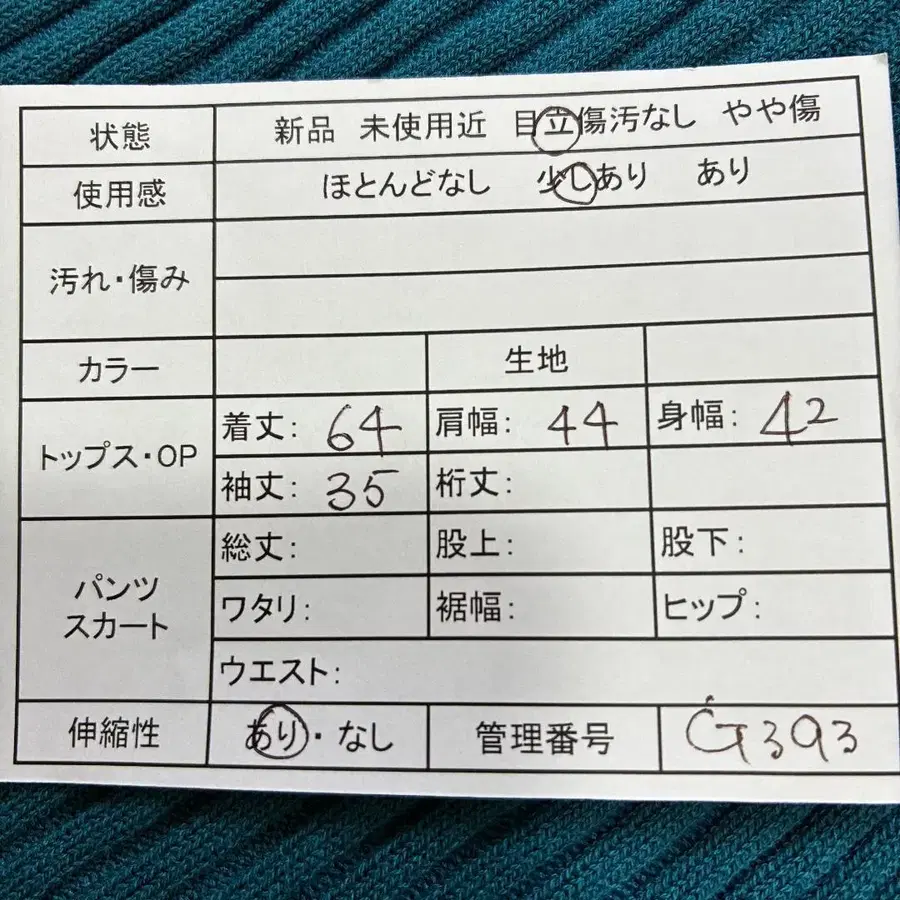 状態 新品 未使用近 目立傷汚なし やや傷
使用感 ほとんどなし 少しあり あり
汚れ・傷み
カラー 生地
トップス・OP 着丈: 64 肩幅: 44 身幅: 42
袖丈: 35 裄丈:
パンツ スカート 総丈: 股上: 股下:
ワタリ: 裾幅: ヒップ:
ウエスト:
伸縮性 あり・なし 管理番号 G393